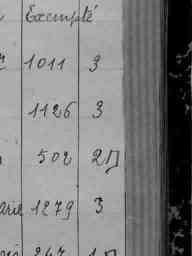 Exempté
1011 3
1126 3
502 2
arie 1279 3